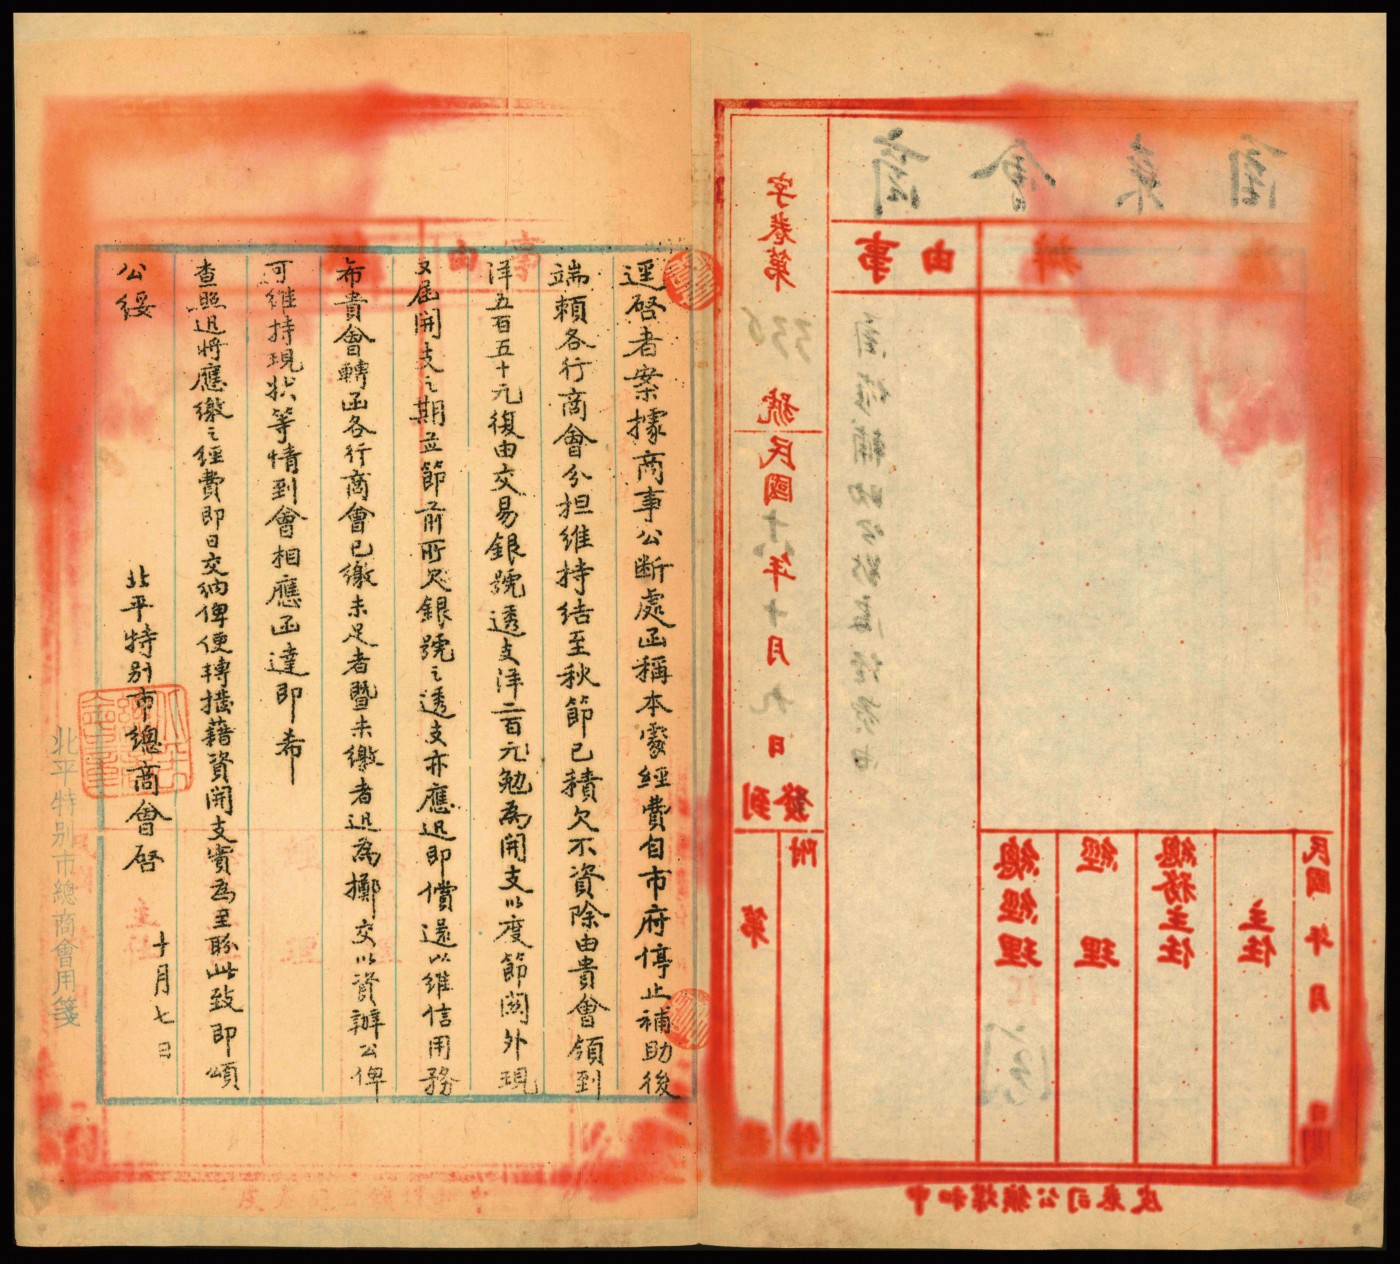 逕啓者案據商事公斷處函稱本處經費自市府停止補助後
端賴各行商會分担維持結至秋節已積欠不資除由貴會領到
洋五百五十元復由交易銀號透支洋二百元勉為開支以度節関外現
又屆開支之期並節前所欠銀號之透支亦應迅即償還以維信用務
希貴會轉函各行商會已繳未足者暨未繳者迅為擲交以資辦公俾
可維持現狀等情到會相應函達即希
查照迅將應繳之經費即日交納俾便轉撥藉資開支實為至盼此致即頌
公綏
北平特别市總商會啓
十月七日
北平特别市總商會用箋
事由
字卷第336號
民國十八年十月九日
發到
附
件
第
總經理
經理
總務主任
主任
民國 年 月 日
中和煤礦公司卷皮